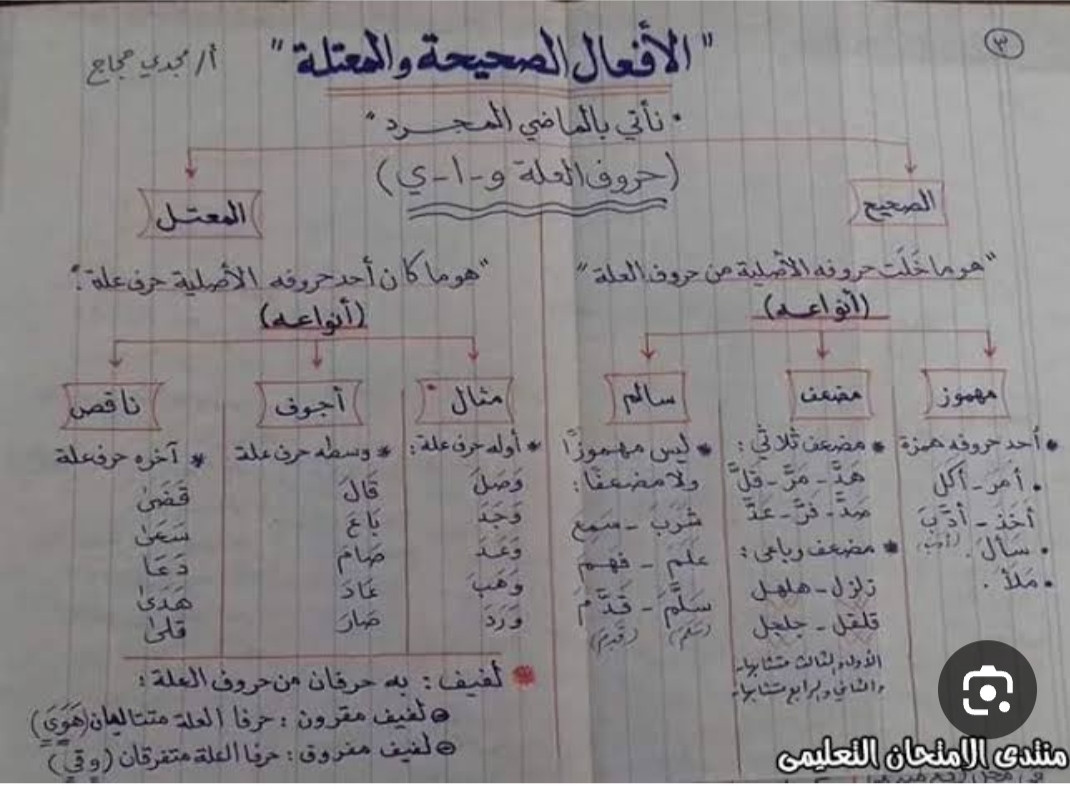 ٣
"الأفعال الصحيحة والمعتلة"
أ/ مجدي حجاج
• نأتي بالماضي المجرد "
(حروف العلة و-ا-ي)
الصحيح
"هو ما خَلَت حروفه الأصلية من حروف العلة"
(أنواعه)
مهموز
* أحد حروفه همزة
• أمَرَ - أكل
أخَذَ - أدَّبَ
(أدب)
• سَألَ .
• مَلَأ .
مضعف
* مضعف ثلاثي :
هدَّ - مَرَّ - قلَّ
صَدَّ - فَرَّ - عَدَّ
* مضعف رباعى :
زلزل - هلهل
قلقل - جلجل
الأول والثالث متشابهان
والثاني والرابع متشابهان
سالم
* ليس مهموزًا
ولا مضعفًا :
شَرِبَ - سَمِعَ
عَلِمَ - فهِمَ
سَلَّمَ - قَدَّمَ
(سَلِمَ) (قَدِمَ)
المعتل
"هو ما كان أحد حروفه الأصلية حرف علة :"
(أنواعه)
مثال
* أوله حرف علة :
وَصَلَ
وَجَدَ
وَعَدَ
وَهَبَ
وَرَدَ
أجوف
* وسطه حرف علة
قَالَ
بَاعَ
صَامَ
عَادَ
صَارَ
ناقص
* آخره حرف علة
قَضَىٰ
سَعَىٰ
دَعَا
هَدَىٰ
قلىٰ
* لفيف : به حرفان من حروف العلة :
لفيف مقرون : حرفا العلة متتاليان (هَوَىَ)
لفيف مفروق : حرفا العلة متفرقان (وقىَ)
منتدى الامتحان التعليمى